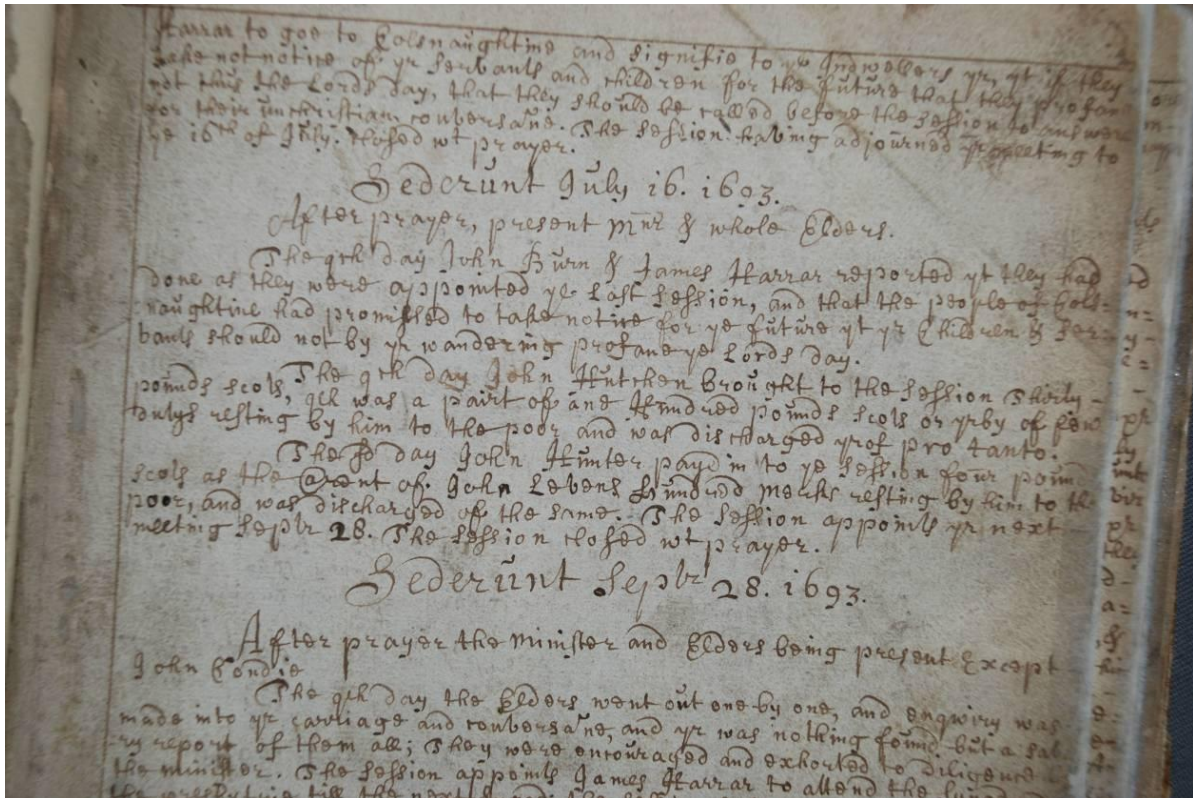 Harrar to goe to Colsnaughtine and signifie to yr Indwellers yr, yt if they
take not notice of yr servants and children for the future that they profane
not thus the Lords day, that they should be called before the session to answere
for their unchristian conversane. The session having adjourned meeting to
ye 16th of July. closed wt prayer.
Sederunt July 16. 1693.
After prayer, present Minr & whole Elders.
The qch day John Burn & James Harrar reported yt they had
done as they were appointed ye last session, and that the people of Cols-
naughtine had promissed to take notice for ye future yt yr Children & ser-
vants should not by yr wandering profane ye Lords day.
The qch day John Hutchen brought to the session Thirty-
pounds scots, qch was a pairt of ane Hundred pounds scots or yrby of few
dutys resting by him to the poor and was discharged yrof pro tanto.
The sd day John Hunter payd in to ye session four pound
scots as the @rent of John Levens Hundred merks resting by him to the
poor, and was discharged of the same. The session appoints yr next
meeting Septr 28. The session closed wt prayer.
Sederunt Septr 28. 1693.
After prayer the minister and Elders being present Except
John Condie
The qch day the Elders went out one by one, and enqwiry was
made into yr carriage and conversane, and yr was nothing found but a sat
ry report of them all; They were encouraged and exhorted to diligence
the minister. The session appoints James Harrar to attend the